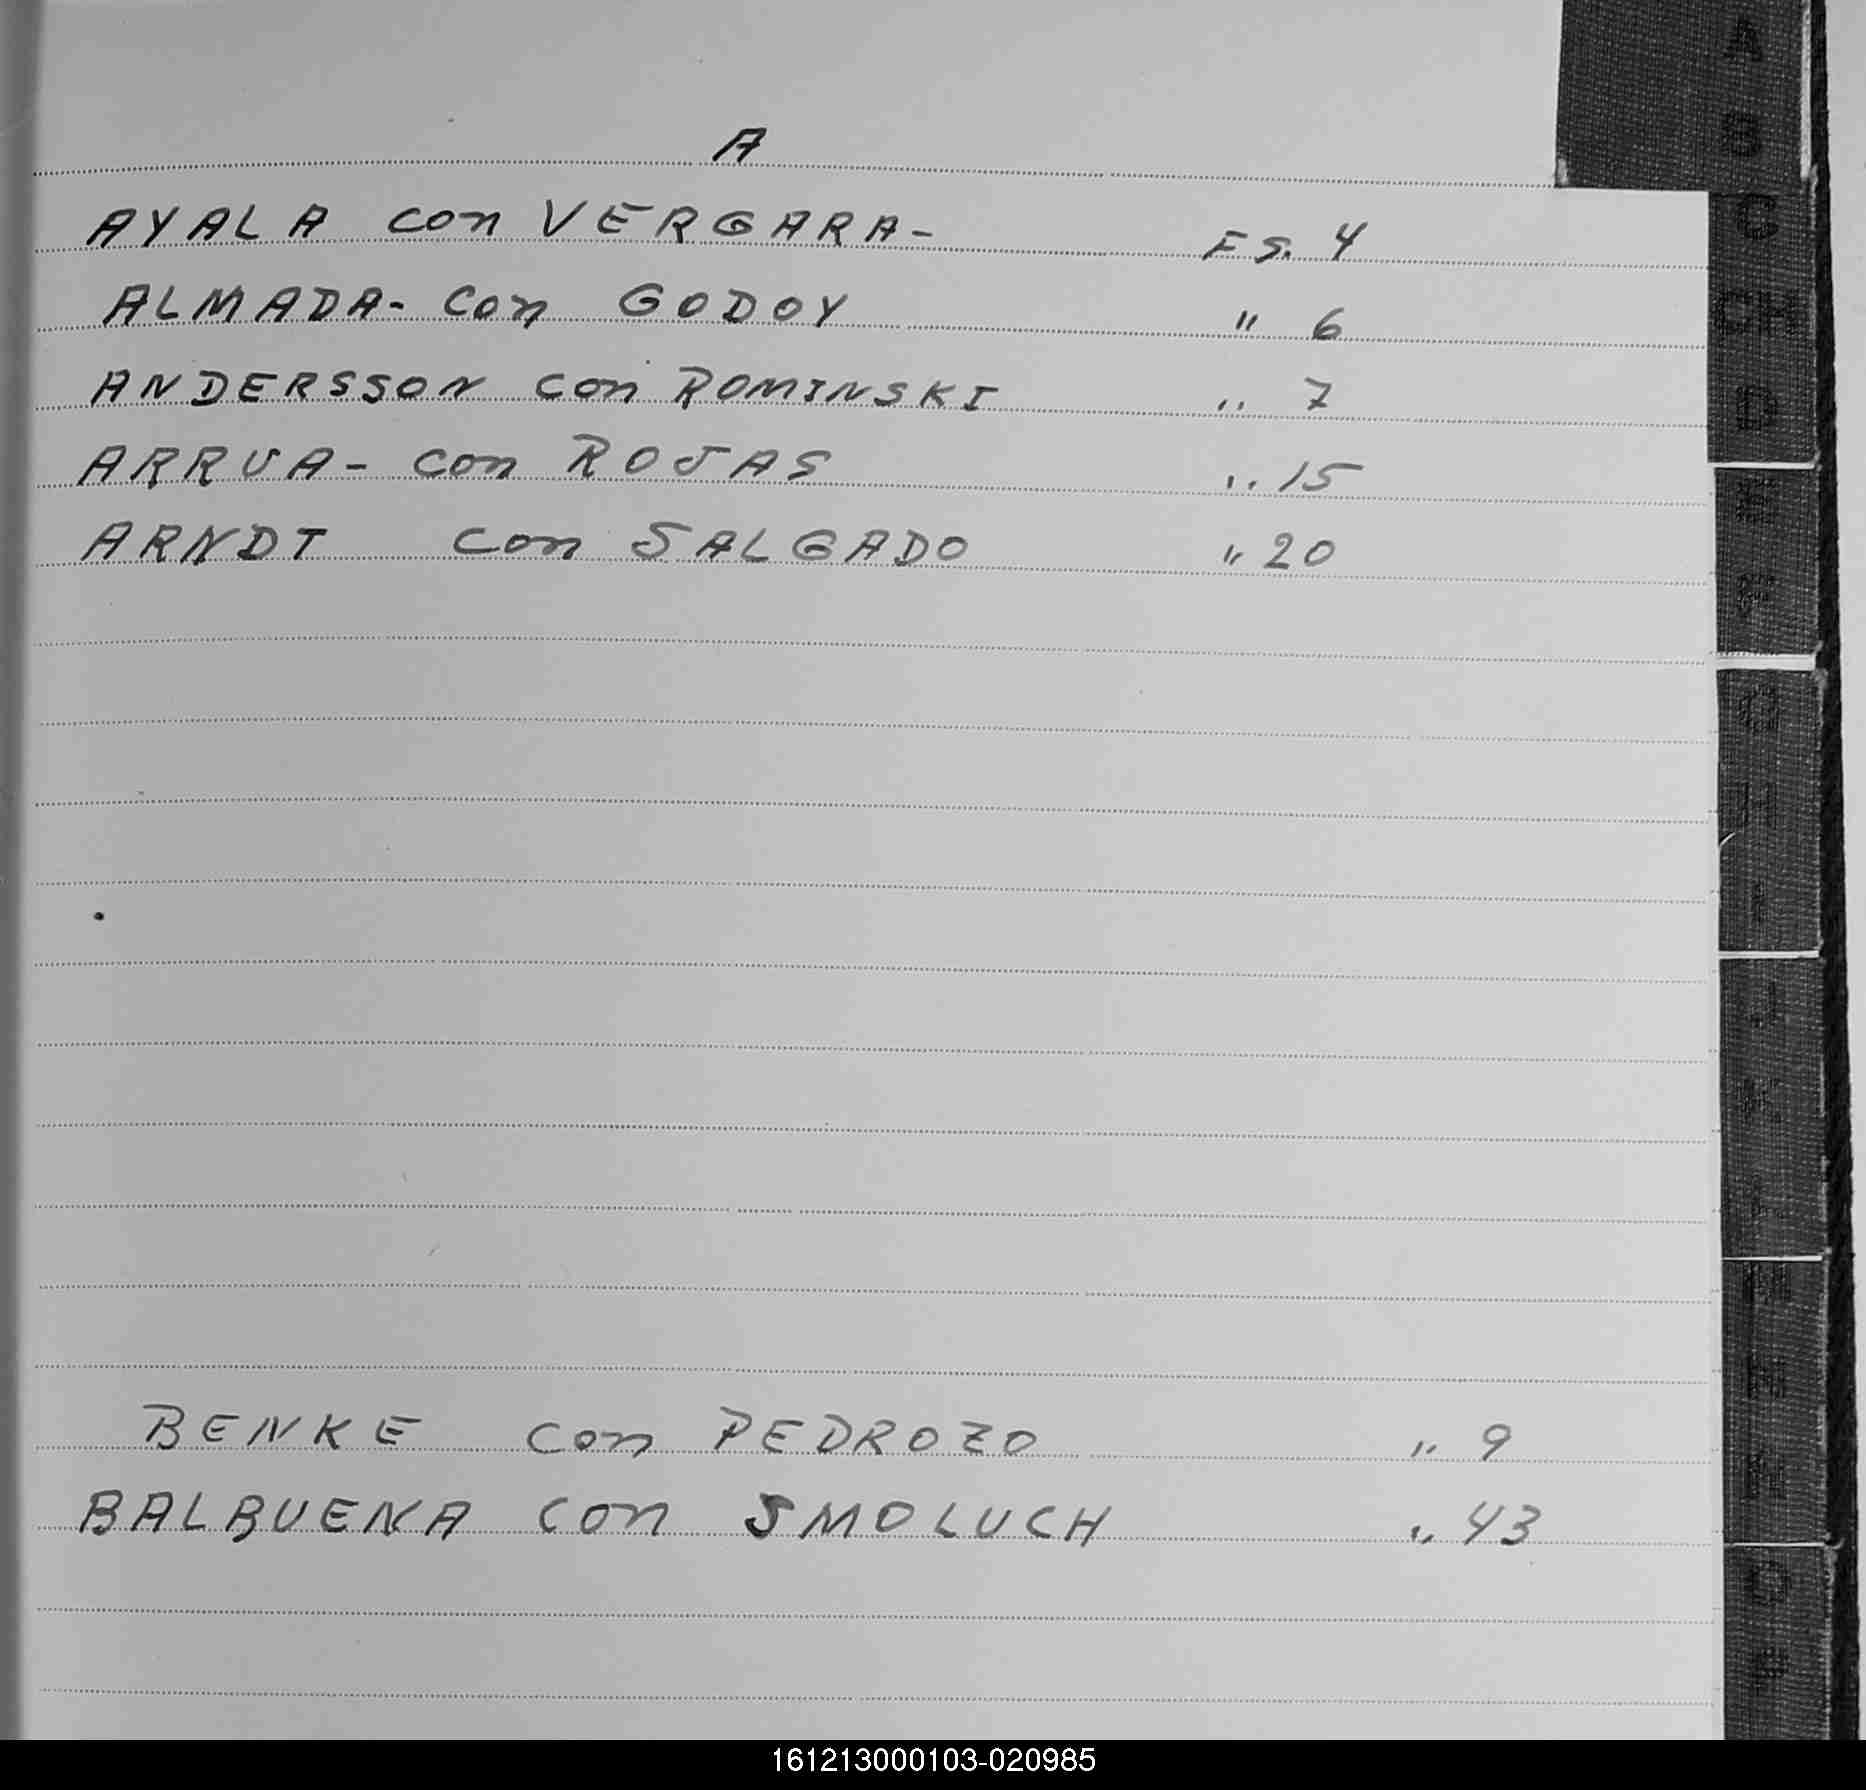 A
AYALA con VERGARA- Fs. 4
ALMADA- con GODOY " 6
ANDERSSON con ROMINSKI " 7
ARRUA- con ROJAS " 15
ARNDT con SALGADO " 20
BENKE con PEDROZO " 9
BALBUENA con SMOLUCH " 43
A
B
C
CH
D
E
F
G
H
I
J
K
L
M
N
Ñ
O
P
161213000103-020985